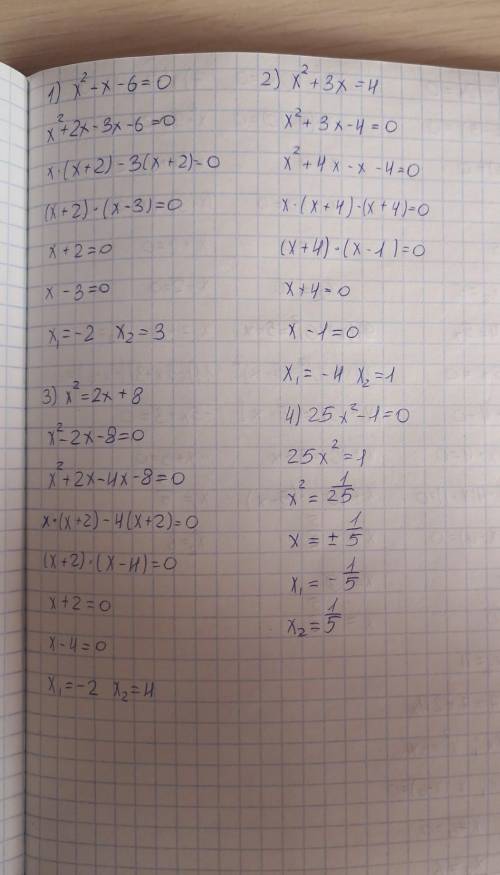 1) x² - x - 6 = 0
x² + 2x - 3x - 6 = 0
x · (x + 2) - 3(x + 2) = 0
(x + 2) · (x - 3) = 0
x + 2 = 0
x - 3 = 0
x₁ = -2 x₂ = 3
3) x² = 2x + 8
x² - 2x - 8 = 0
x² + 2x - 4x - 8 = 0
x · (x + 2) - 4(x + 2) = 0
(x + 2) · (x - 4) = 0
x + 2 = 0
x - 4 = 0
x₁ = -2 x₂ = 4
2) x² + 3x = 4
x² + 3x - 4 = 0
x² + 4x - x - 4 = 0
x · (x + 4) - (x + 4) = 0
(x + 4) · (x - 1) = 0
x + 4 = 0
x - 1 = 0
x₁ = -4 x₂ = 1
4) 25x² - 1 = 0
25x² = 1
x² = 1/25
x = ± 1/5
x₁ = - 1/5
x₂ = 1/5